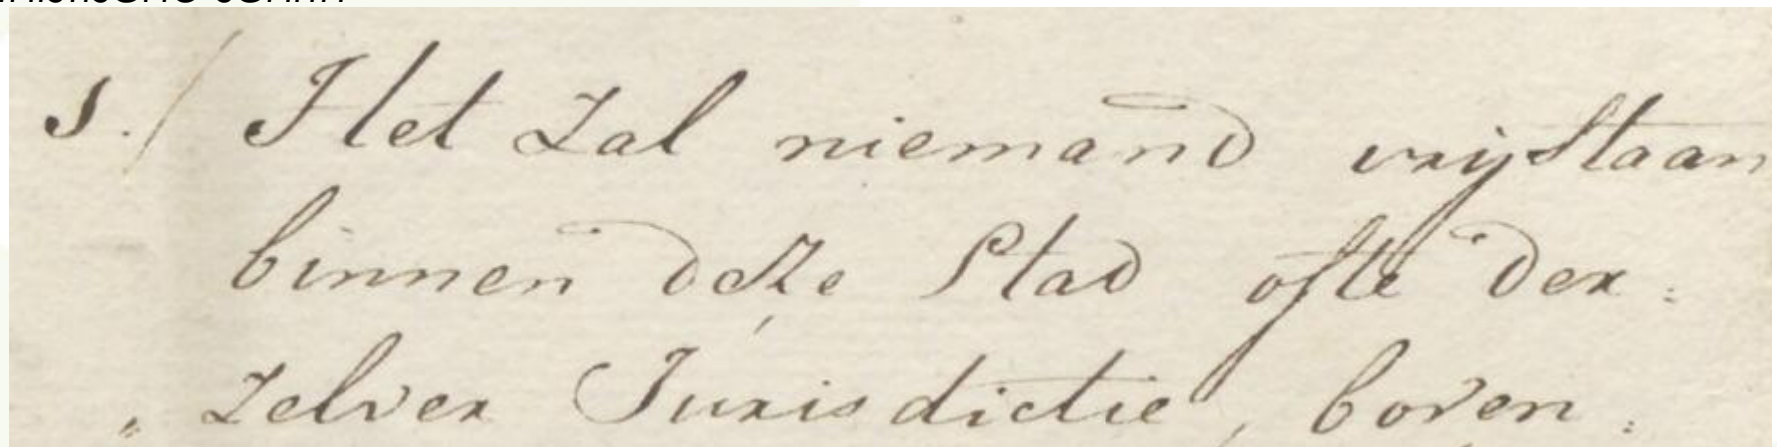 1./ Het zal niemand vrijstaan
binnen deze Stad ofte der:
„ zelver Jurisdictie, boven: